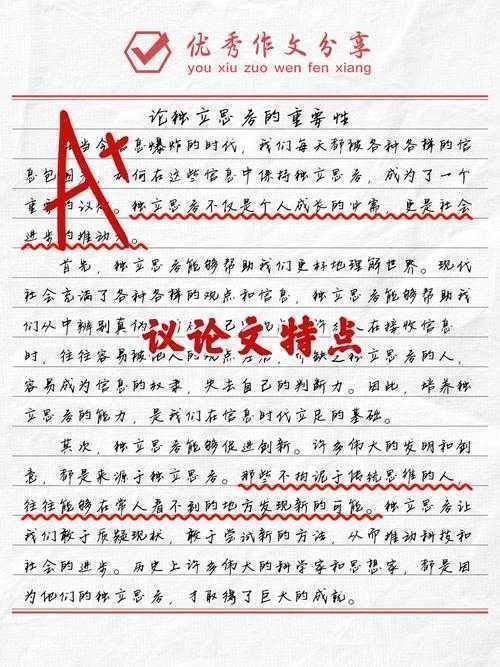 优秀作文分享
you xiu zuo wen fen xiang
论独立思考的重要性
A+
当今信息爆炸的时代，我们每天都被各种各样的信
息包围，如何在这些信息中保持独立思考，成为了一个
重要的议题。独立思考不仅是个人成长的必需，更是社会
进步的推动力。
首先，独立思考能够帮助我们更好地理解世界。现代
社会充满了各种各样的观点和信息，独立思考能够帮助我
们从中辨别真伪，己人在接收信息
议论文特点
时，往往容易被他人的观点左右，缺乏独立思考的人，
容易成为信息的奴隶，失去自己的判断力。因此，培养独
立思考的能力，是我们在信息时代立足的基础。
其次，独立思考能够促进创新。许多伟大的发明和创
意，都是来源于独立思考。那些不拘泥于传统思维的人，
往往能够在常人看不到的地方发现新的可能。独立思考让
我们敢于质疑现状，敢于尝试新的方法，从而推动科技和
社会的进步。历史上许多伟大的科学家和思想家，都是因
为他们的独立思考，才取得了巨大的成就。